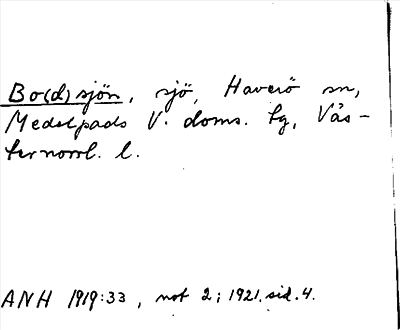 Bo(d)sjön, sjö, Haverö sn,
Medelpads V. doms. tg, Väs-
ternorrl. l.
ANH 1919:33, not 2; 1921. sid. 4.